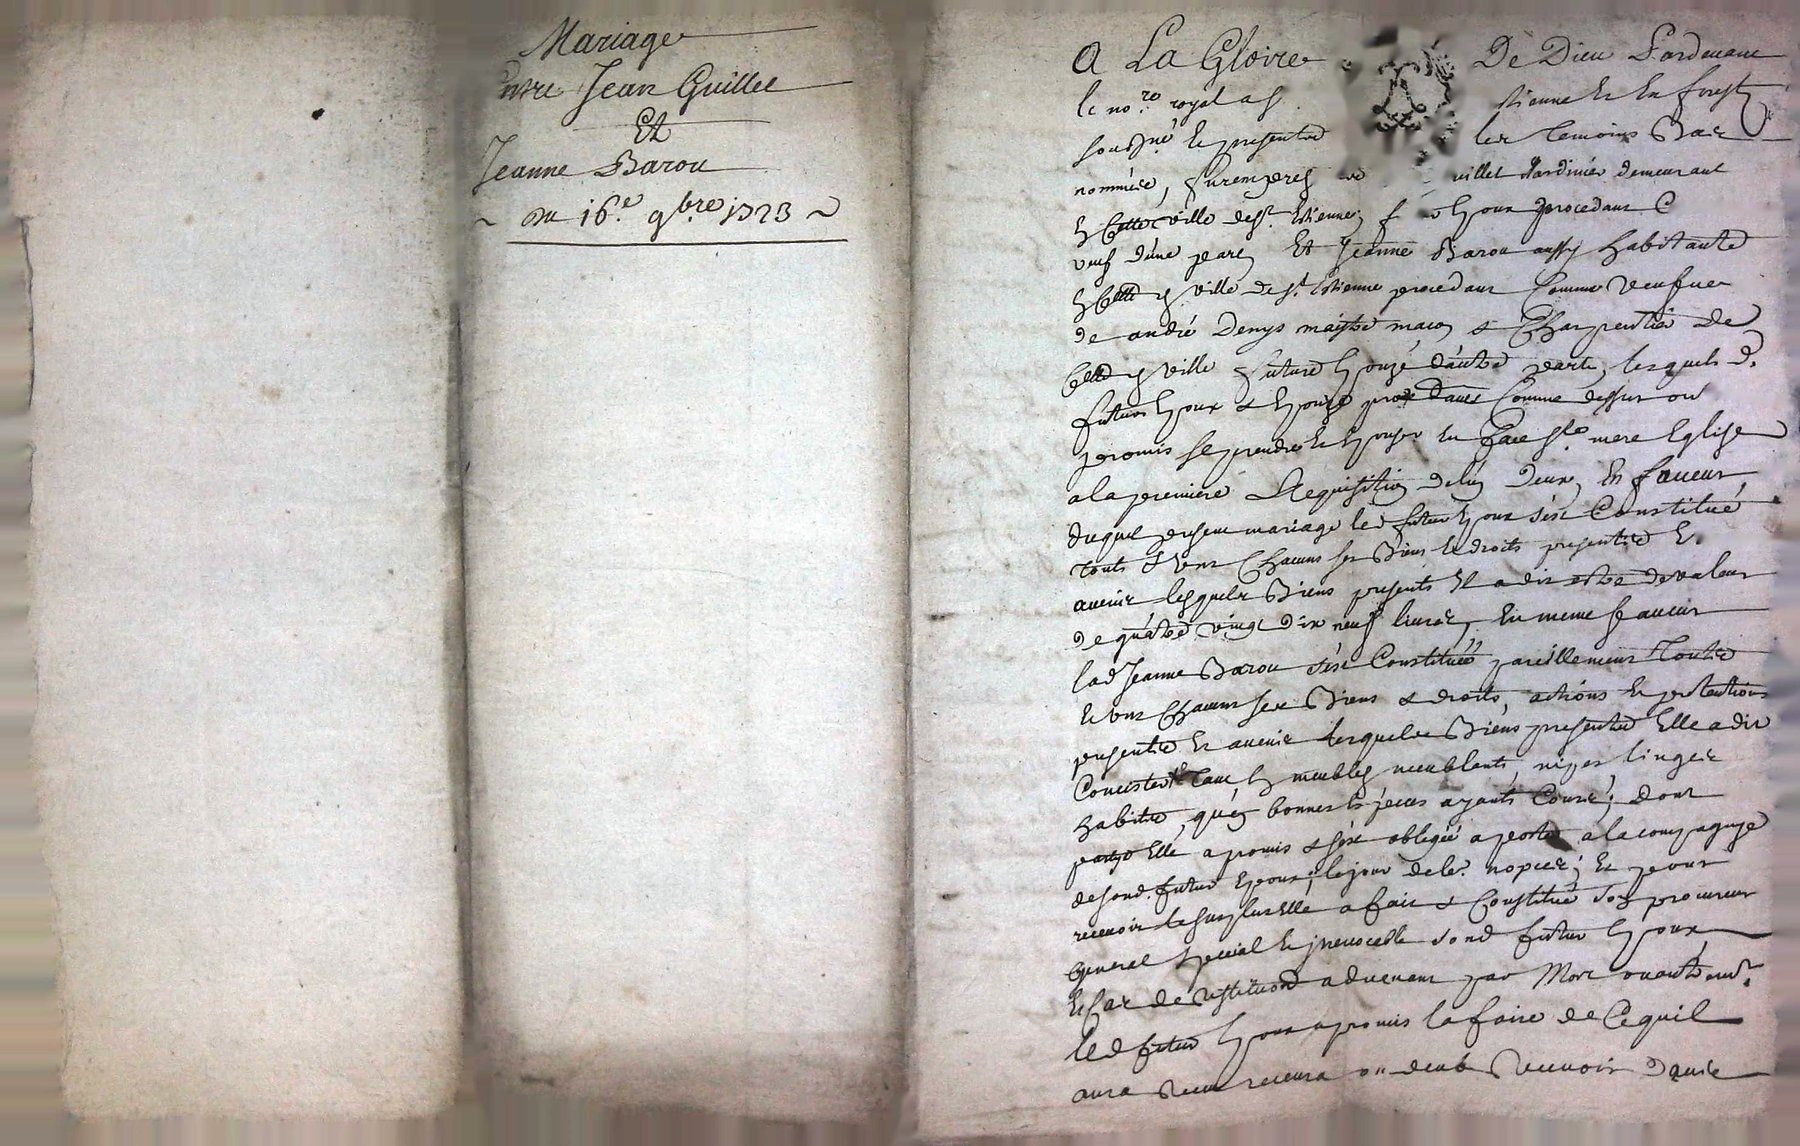 Mariage
Entre Jean Guillet
Et
Jeanne Barou
~ du 16.e 9bre 1723 ~
A La Gloire De Dieu Pardevant
le no.re royal a St tienne En forest
sousigné Et presents les temoins Bas
nommés, furent presents villet Jardinier demeurant
En Cette ville de St. Estienne f Epoux procedant C
veuf d'une part, Et Jeanne Barou aussy habitante
En Cette ville de St. Estienne procedant Comme veufve
de andré Denys maistre maçon & Charpentier De
Cette ville future Epouze d'autre part, lesquels d.
futurs Epoux & Epouze procedants Comme dessus ont
promis se prendre Et Epouser En face Ste. mere Eglise
a la premiere Requisition de l'un deux, En faveur
duquel present mariage led futur Epoux s'est Constitué
touts & uns Chacuns ses Biens Et droits presents E.
avenir lesquels Biens presents Il a dit estre de valeur
de quatre vingt dix neuf livres, En meme faveur
lad Jeanne Barou s'est Constituée pareillement Touts
Et uns Chacuns ses Biens & droits, actions Et pretentions
presents Et avenir lesquels Biens presents Elle a dit
Concister tant En meubles meublants, nipes linges
habits, qu'en bonnes Especes ayants Cours; dont
Elle a promis & s'est obligée a porter a la compagnye
de sond. futur Epoux, le jour de le. nopces; Et pour
recevoir le surplus Elle a fait & Constitué son procureur
General special Et irrevocable sond futur Epoux
Et Cas de restitution advenant par Mort ou autrem.t
led futur Epoux a promis la faire de Ce quil
aura receu recevra ou deub recevoir d'avec